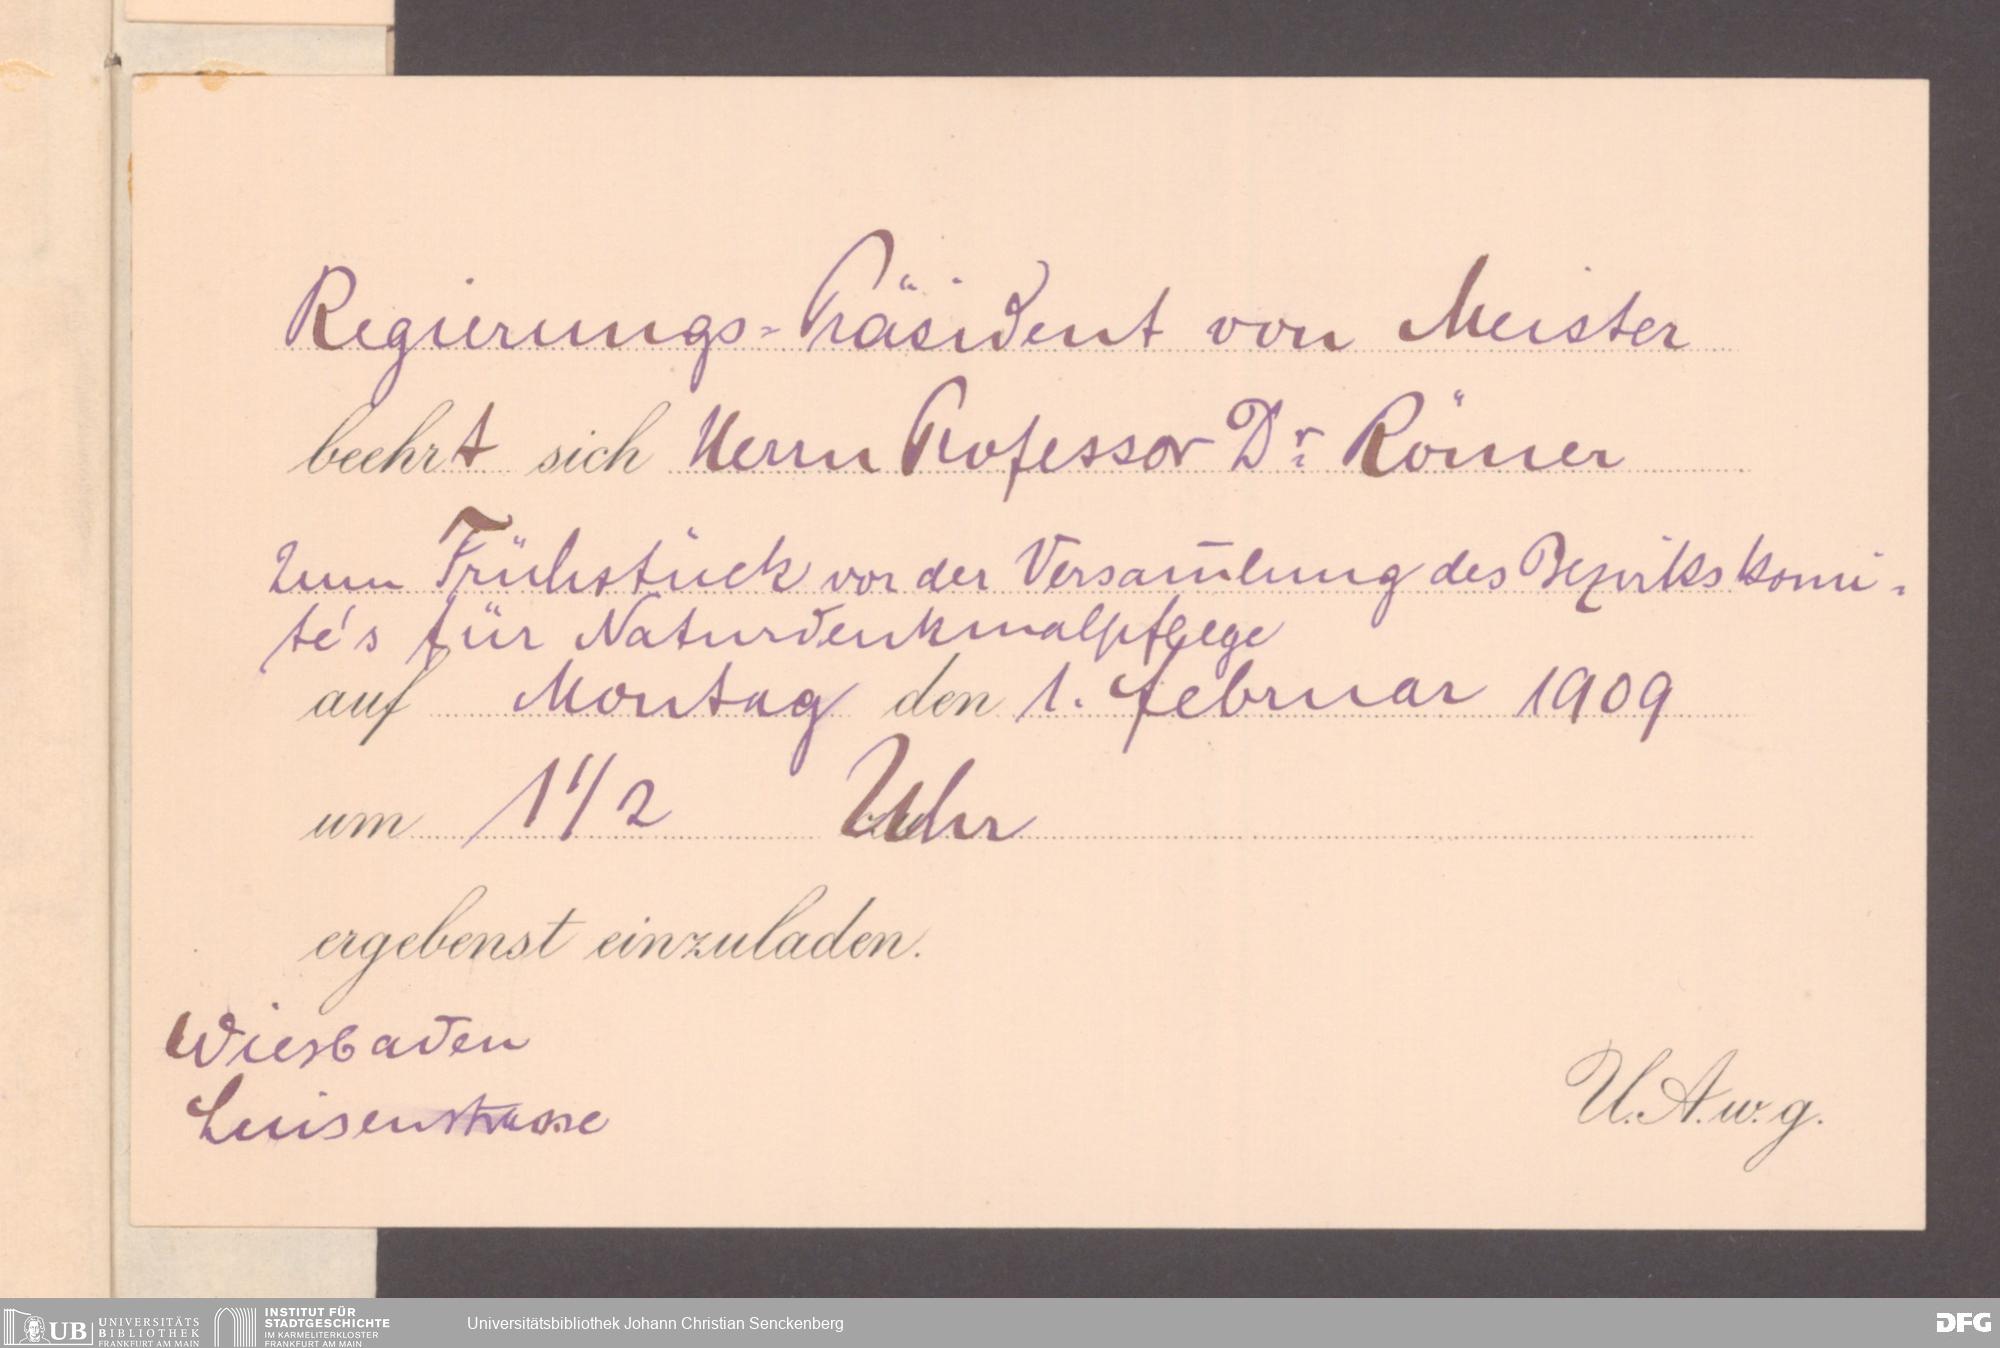 Regierungs-Präsident von Meister
beehrt sich Herrn Professor Dr. Römer
zum Frühstück vor der Versam̄lung des Bezirkskomi-
té's für Naturdenkmalpflege
auf Montag den 1. Februar 1909
um 1 1/2 Uhr
ergebenst einzuladen.
Wiesbaden
Luisenstrasse
U. A. w. g.
UB UNIVERSITÄTS
BIBLIOTHEK
FRANKFURT AM MAIN
INSTITUT FÜR
STADTGESCHICHTE
IM KARMELITERKLOSTER
FRANKFURT AM MAIN
Universitätsbibliothek Johann Christian Senckenberg
DFG